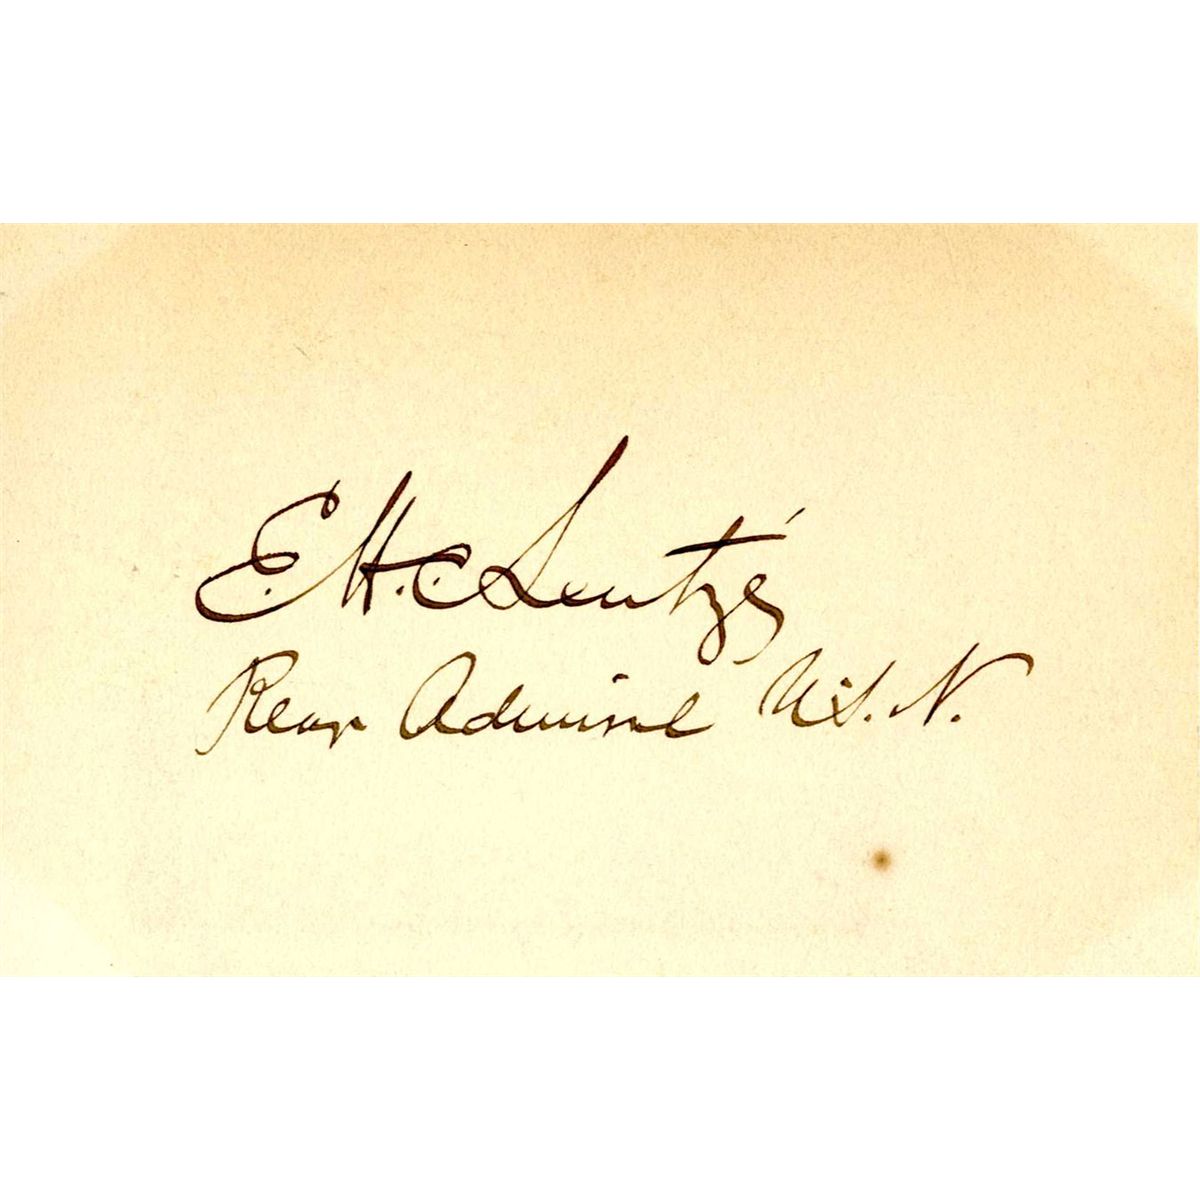 E. H. C. Leutzé
Rear Admiral U.S.N.